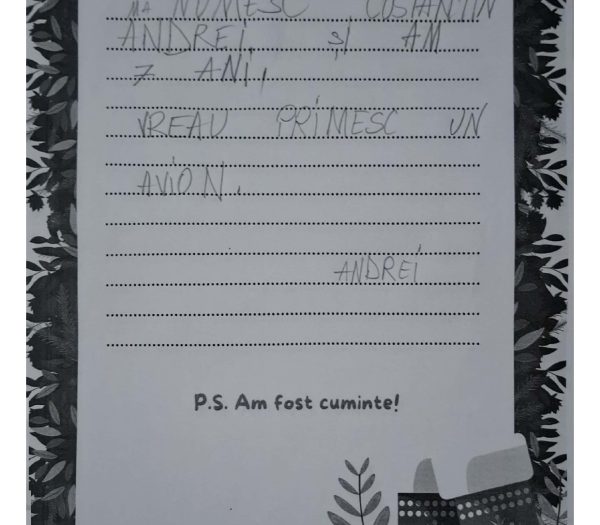 MĂ NUMESC COSTANTIN
ANDREI, ȘI AM
7 ANI,
VREAU PRIMESC UN
AVION.
ANDREI
P.S. Am fost cuminte!